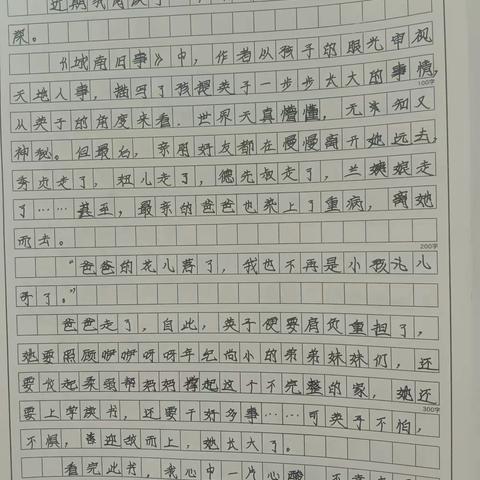 近期我阅读了
深。
《城南旧事》中，作者从孩子的眼光审视
天地人事，描写了孩提英子一步步长大的事情，
100字
从英子的角度来看，世界天真懵懂，无求知又
神秘。但最后，亲朋好友都在慢慢离开她远去，
秀贞走了，妞儿走了，德先叔走了，兰姨娘走
了……甚至，最亲的爸爸也染上了重病，离她
而去。
200字
“爸爸的花儿落了，我也不再是小孩儿
了。”
爸爸走了，自此，英子便要肩负重担了，
她要照顾咿咿呀呀年纪尚小的弟弟妹妹们，还
要收起柔弱帮妈妈撑起这个不完整的家，她还
要上学读书，还要干好多事……可英子不怕，
300字
不惧，喜迎故而上，她长大了。
看完此书，我心中一片心酸，不